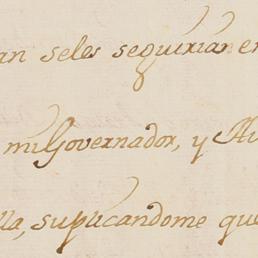 an seles seguirian en
mi Governador, y Au
lla, suplicandome que